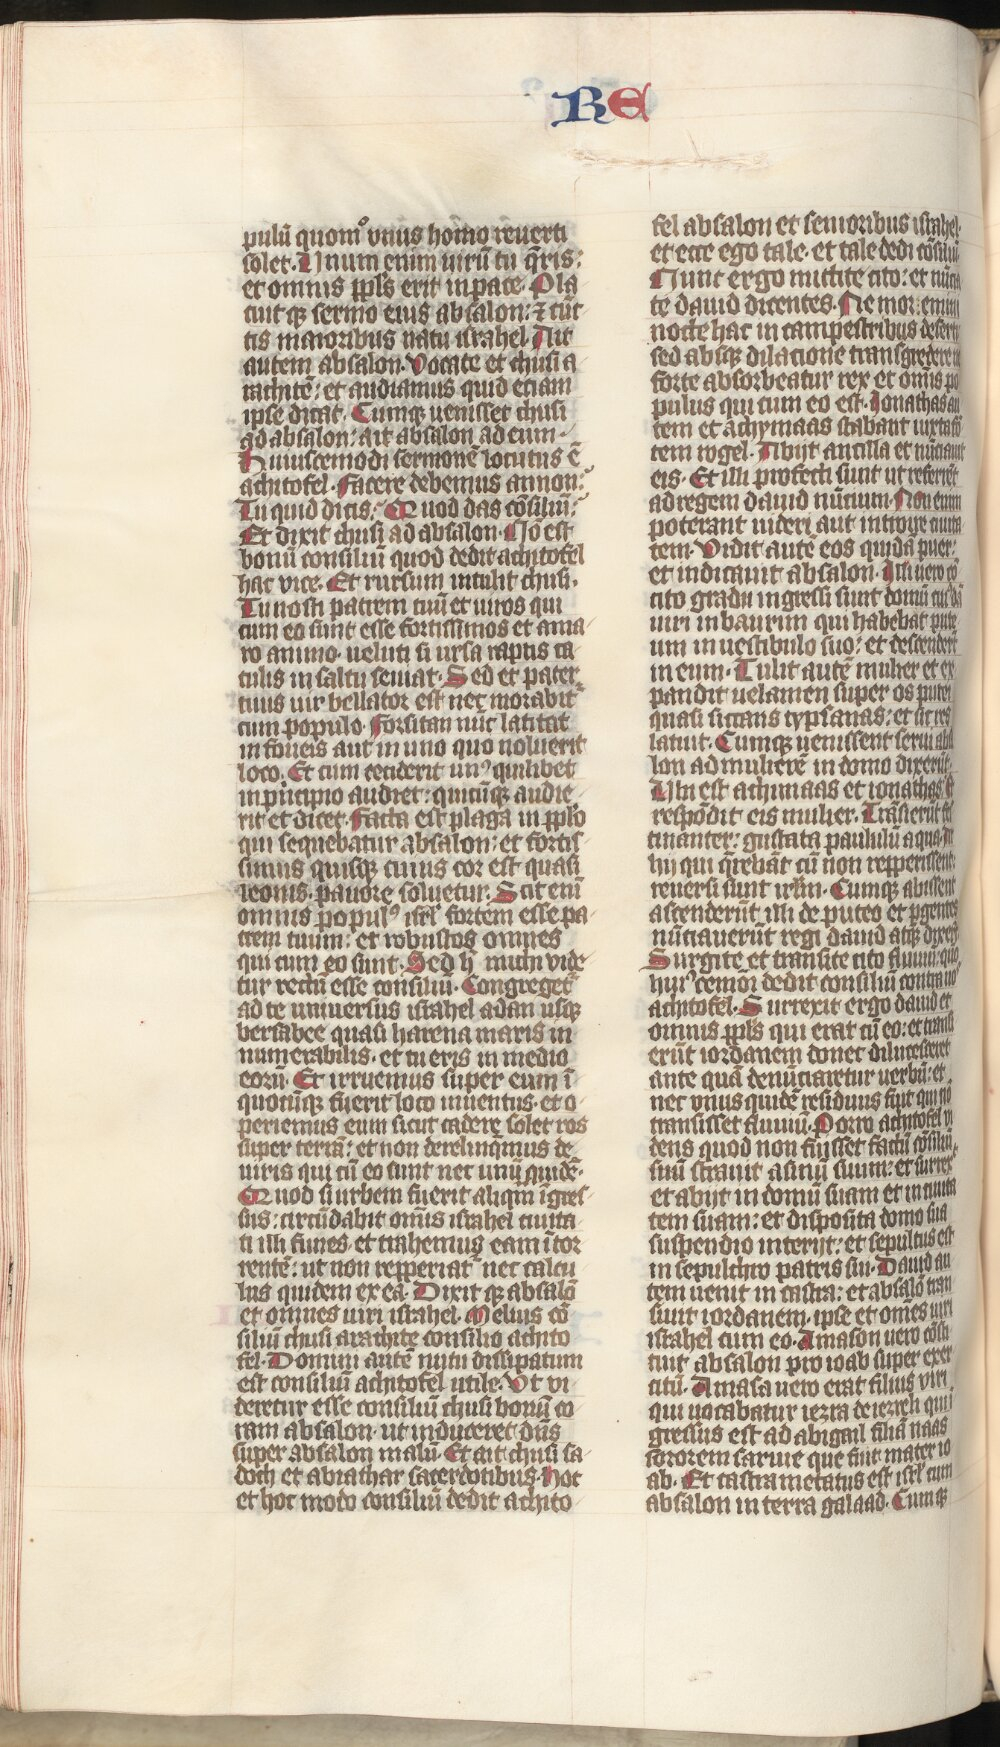 RE
pulū quomo vnus homo reuerti
solet. Unum enim uirū tu q̄ris:
et omnis ppl's erit in pace. Pla
cuit qȝ sermo eius absalon: ⁊ cūc
tis maioribus natu israhel. Ait
autem absalon. Vocate et chusi a
rachitē: et audiamus quid etiam
ipse dicat. Cumqȝ uenisset chusi
ad absalon: ait absalon ad eum.
Huiuscemodi sermonē locutus ē
achitofel. Facere debemus an non:
Tu quid dicis: Quod das cōsiliū:
Et dixit chusi ad absalon. Nō est
bonū consiliū quod dedit achitofel
hac vice. Et rursum intulit chusi.
Tu nosti patrem tuū et uiros qui
cum eo sunt esse fortissimos et ama
ro animo. ueluti si ursa raptis ca
tulis in saltu seuiat. Sed et pater
tuus uir bellator est nec morabit᷑
cum populo. Forsitan nūc latitat
in foueis aut in uno quo uoluerit
loco. Et cum ceciderit unꝰ quilibet
in principio audiet: quicūqȝ audie
rit et dicet. Facta est plaga in pplo
qui sequebatur absalon: et fortis
simus quisqȝ cuius cor est quasi
leonis. pauore soluetur. Scit enī
omnis populꝰ isrl' fortem esse pa
trem tuum: et robustos omnes
qui cum eo sunt. Sed h michi vide
tur rectū esse consiliū. Congreget᷑
ad te uniuersus israhel a dan usqȝ
bersabee quasi harena maris in
numerabilis. et tu eris in medio
eorū. Et irruemus super eum ī
quocūqȝ fuerit loco inuentus. et o
periemus eum sicut cadere solet ros
super terrā: et non derelinqmus de
uiris qui cū eo sunt nec unū quidē.
Quod si urbem fuerit aliqm īgres
sus: circūdabit omīs israhel ciuita
ti illi funes. et trahemus eam ī tor
rentē: ut non repperiat᷑ nec calcu
lus quidem ex ea. Dixit qȝ absalō
et omnes uiri israhel. Melius cō
siliū chusi arachite consilio achito
fel. Domini autē nutu dissipatum
est consiliū achitofel utile. Vt vi
deretur esse consiliū chusi bonū co
ram absalon. ut induceret dn̄s
super absalon malū. Et ait chusi sa
doch et abiathar sacerdotibus. Hoc
et hoc modo consiliū dedit achito
fel absalon et senioribus israhel.
et ecce ego tale. et tale dedi cōsiliū.
Nunc ergo mittite cito: et nūcia
te dauid dicentes. Ne moremini
nocte hac in campestribus deserti
sed absqȝ dilacione transgredere ne
forte absorbeatur rex et omīs po
pulus qui cum eo est. Jonathas au
tem et achymaas stabant iuxta fō
tem rogel. Abijt ancilla et nūciauit
eis. Et illi profecti sunt ut referrēt
ad regem dauid nūcium. Non enim
poterant uideri aut introire ciuita
tem. Vidit autē eos quidā puer:
et indicauit absalon. Illi uero cō
cito gradu ingressi sunt domū cuiꝰdā
uiri in baurim qui habebat pute
um in uestibulo suo: et descenderūt
in eum. Tulit autē mulier et ex
pandit uelamen super os putei
quasi siccans typsanas: et sic res
latuit. Cumqȝ uenissent serui absa
lon ad mulierē in domo dixerūt.
Ubi est achimaas et ionathas. Et
respōdit eis mulier. Trāsierūt fes
tinanter: gustata paululū aqua. At
hij qui q̄rebāt cū non repperissent:
reuersi sunt irlm̄. Cumqȝ abissent
ascenderūt illi de puteo et pgentes
nūciauerūt regi dauid atqȝ dixerūt.
Surgite et transite cito fluuiū: quo
huiꝰcemoi dedit consiliū contra uos
achitofel. Surrexit ergo dauid et
omnis ppls qui erat cū eo: et transi
erūt iordanem donec dilucesceret
ante quā denūciaretur uerbū: et
nec vnus quidē residuus fuit qui nō
transisset fluuiū. Porro achitofel vi
dens quod non fuisset factū cōsiliū
suū strauit asinū suum: et surrexit
et abijt in domū suam et in ciuita
tem suam: et disposita domo sua
suspendio interijt: et sepultus est
in sepulchro patris sui. Dauid au
tem uenit in castra: et absalō tran
siuit iordanem. ipse et om̄es uiri
israhel cum eo. Amasan uero cōsti
tuit absalon pro ioab super exer
citū. Amasa uero erat filius viri
qui uocabatur iezra de iezreli qui
gressus est ad abigail filiā naas
sororem saruie que fuit mater io
ab. Et castra metatus est isrl' cum
absalon in terra galaad. Cumqȝ